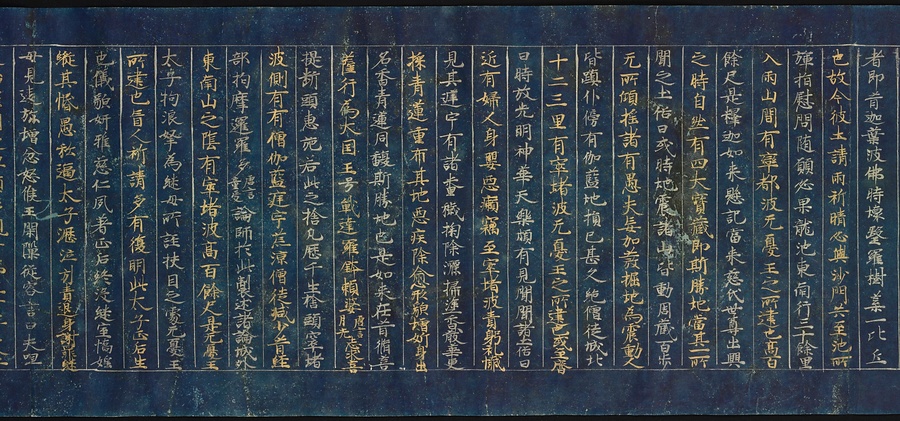 者即昔迦葉波佛時壞毉羅樹葉一比丘
也故今彼土請雨祈晴必與沙門共至池所
彈指慰問隨願必果龍池東南行三十餘里
入兩山間有窣都波无憂王之所建也高百
餘尺是釋迦如来懸記當来慈氏世尊出興
之時自然有四大寶藏即斯勝地當其一所
聞之土俗曰或時地震諸山皆動周藏百步
无所傾搖諸有愚夫妄加發掘地為震動人
皆蹎仆傍有伽藍地損已甚久絶僧徒城北
十二三里有窣堵波无憂王之所建也或至齋
日時放光明神華天樂頗有見聞聞諸土俗曰
近有婦人身嬰惡癩竊至窣堵波責躬礼懺
見其遅宇有諸糞穢掬除灑掃塗香散華更
採青蓮重布其地惡疾除愈形貌增妍身出
名香青蓮同馥斯勝地也是如来在昔脩菩
薩行為大国王号戰達羅鉢頼婆唐言月光志求菩
提斷頭惠施若此之捨凡歴千生捨頭窣堵
波側有僧伽藍遅宇荒涼僧徒減少昔經
部拘摩邏邏多唐言童受論師於此製述諸論城外
東南山之陰有窣堵波高百餘尺是无憂王
太子拘浪拏為継母所誣抉目之處无憂王
所建也盲人祈請多有復明此太子正后生
也儀貌妍雅慈仁夙著正后終没継室憍婬
縱其惛愚私逼太子瀝泣引責退身謝罪継
母見違弥增忿怒候王閑隟從容言曰夫呾